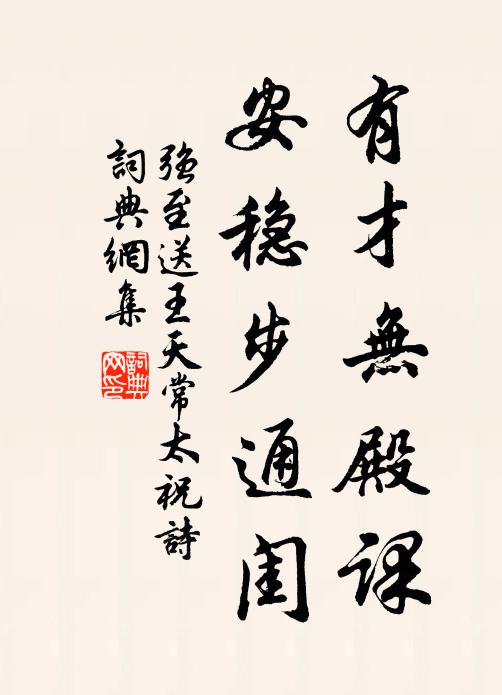 有才無殿課
安穩步通闺
強至送王天常太祝詩
詞典網集
詞典网印